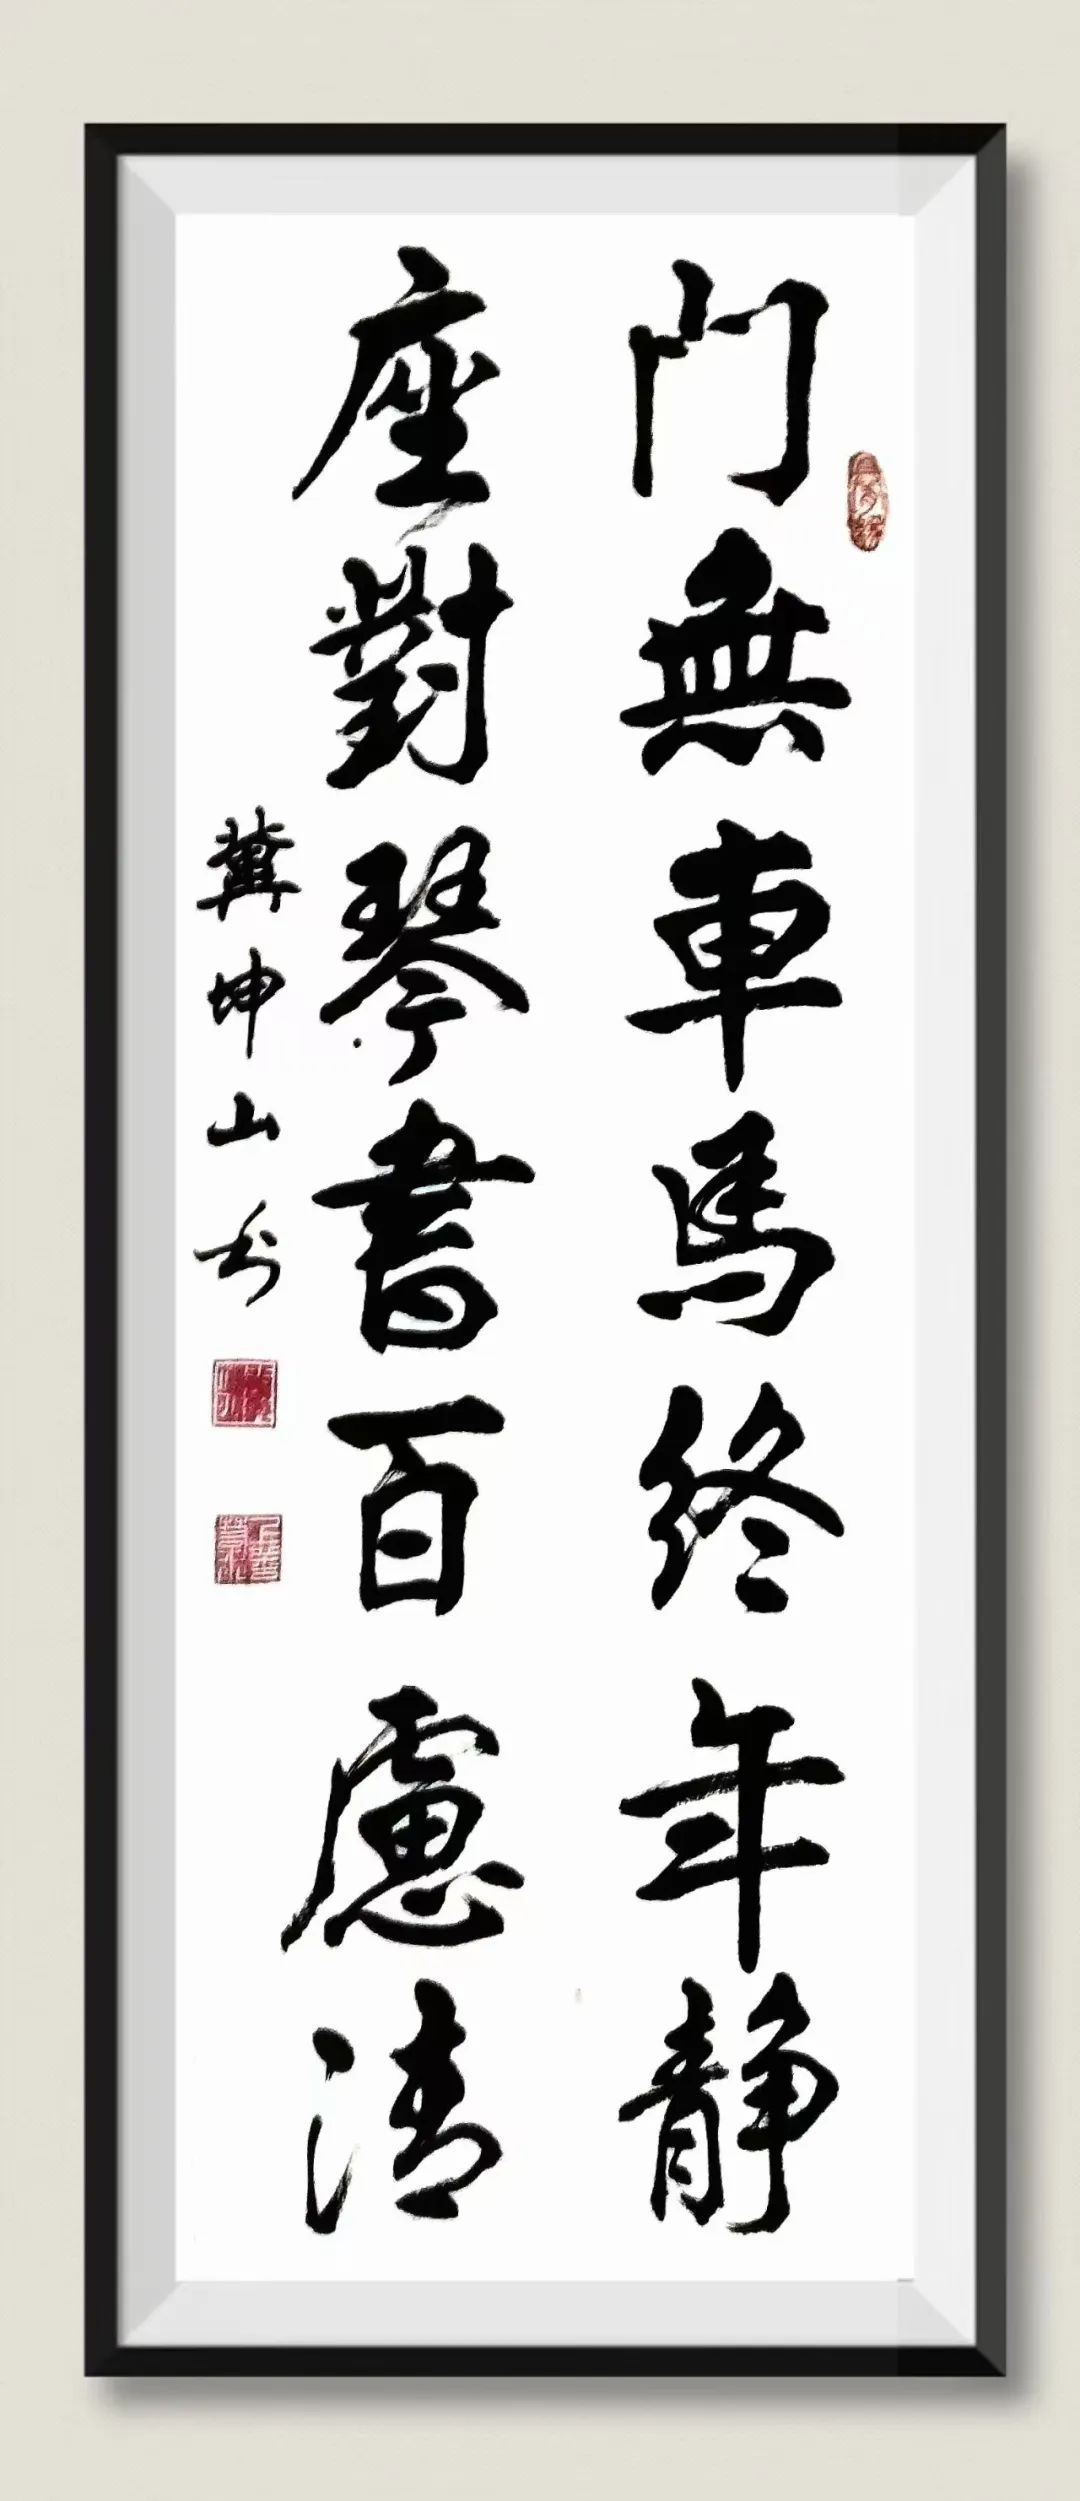 門無車馬終年静
座對琴書百慮清
坤山书